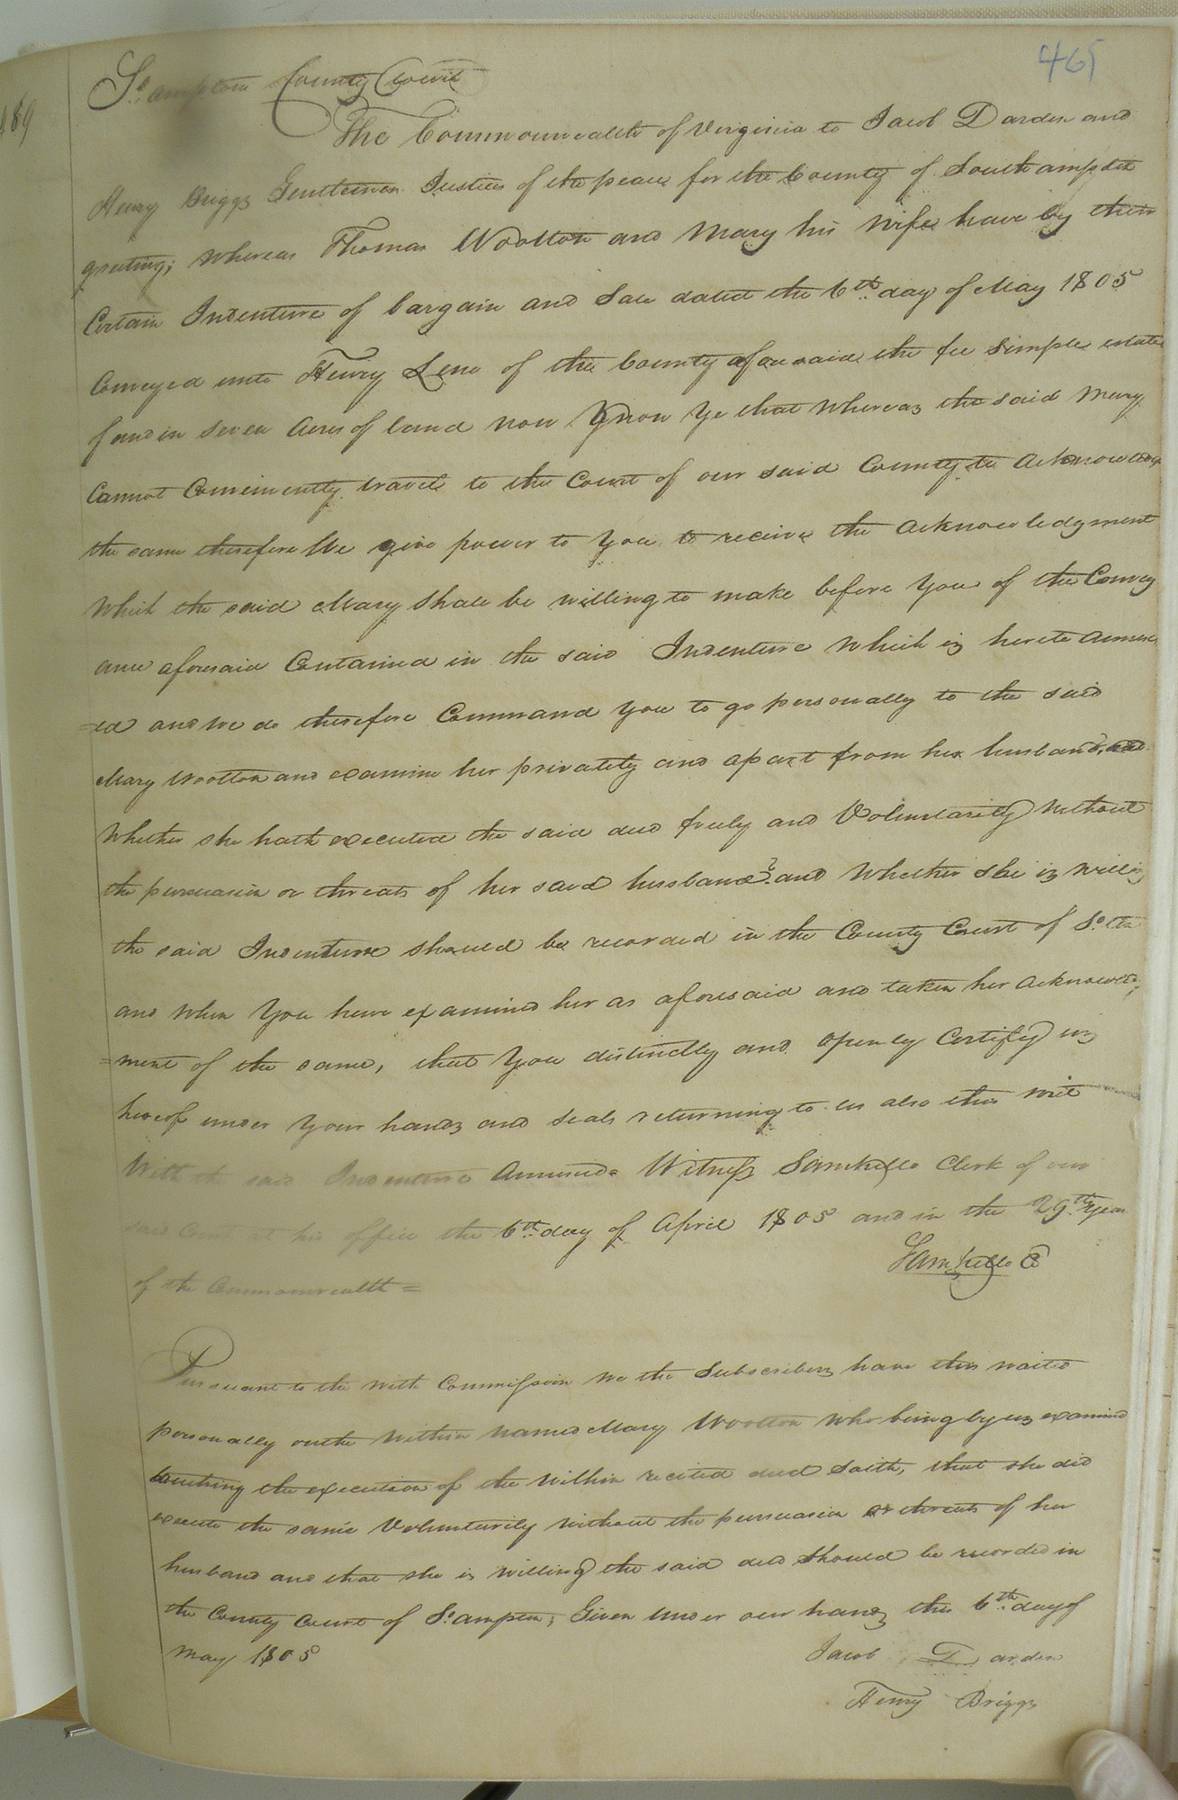 465
489
So. ampton County Court
The Commonwealth of Virginia to Jacob Darden and
Henry Briggs Gentlemen Justices of the peace for the County of Southampton
greeting; whereas Thomas Wootton and Mary his wife have by their
Certain Indenture of bargain and Sale dated the 6th day of May 1805
Conveyed unto Henry Lene of the County aforesaid the fee Simple estate
of and in seven Acres of land now Know Ye that Whereas the said Mary
Cannot Conveniently travel to the Court of our said County to Acknowledge
the same therefore We give power to You to receive the acknowledgment
Which the said Mary Shall be willing to make before You of the Convey
ance aforesaid Contained in the said Indenture Which is hereto Annex
=ed and we do therefore Command You to go personally to the said
Mary Wootton and examine her privately and apart from her husband,
Whether she hath executed the said deed freely and Voluntarily Without
the persuasion or threats of her said husband? and Whether She is willing
the said Indenture should be recorded in the County Court of So. ton
and When You have examined her as aforesaid and taken her Acknowledg
=ment of the same, that You distinctly and openly Certify us
hereof under Your hands and seals returning to us also this writ
With the said Indenture Annexed. Witness Saml. Kello Clerk of our
said Court at his office the 6th day of April 1805 and in the 29th Year
of the Commonwealth =
Saml Kello C
Pursuant to the with Commission We the Subscribers have this waited
personally on the Within named Mary Wootton Who being by us examined
touching the execution of the Within recited deed saith, that she did
execute the same Voluntarily Without the persuasion or threats of her
husband and that she is willing the said deed Should be recorded in
the County Court of So. ampton; Given Under our hands this 6th day of
May 1805
Jacob Darden
Henry Briggs